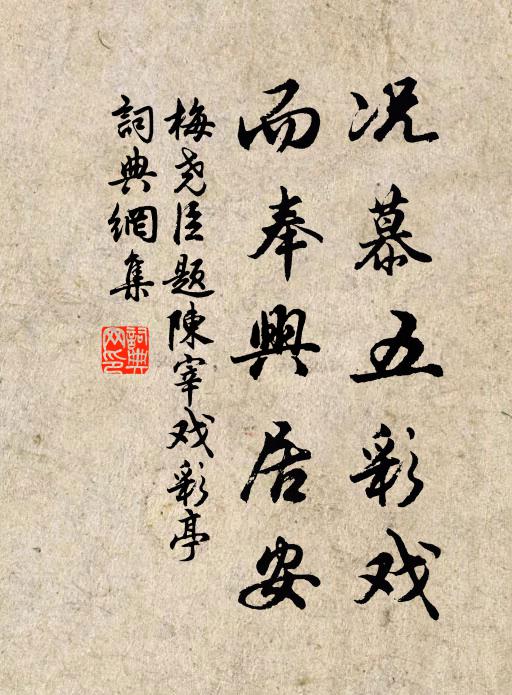 况慕五彩戏
而奉興居安
梅尧臣题陳宰戏彩亭
詞典網集
詞典
网印